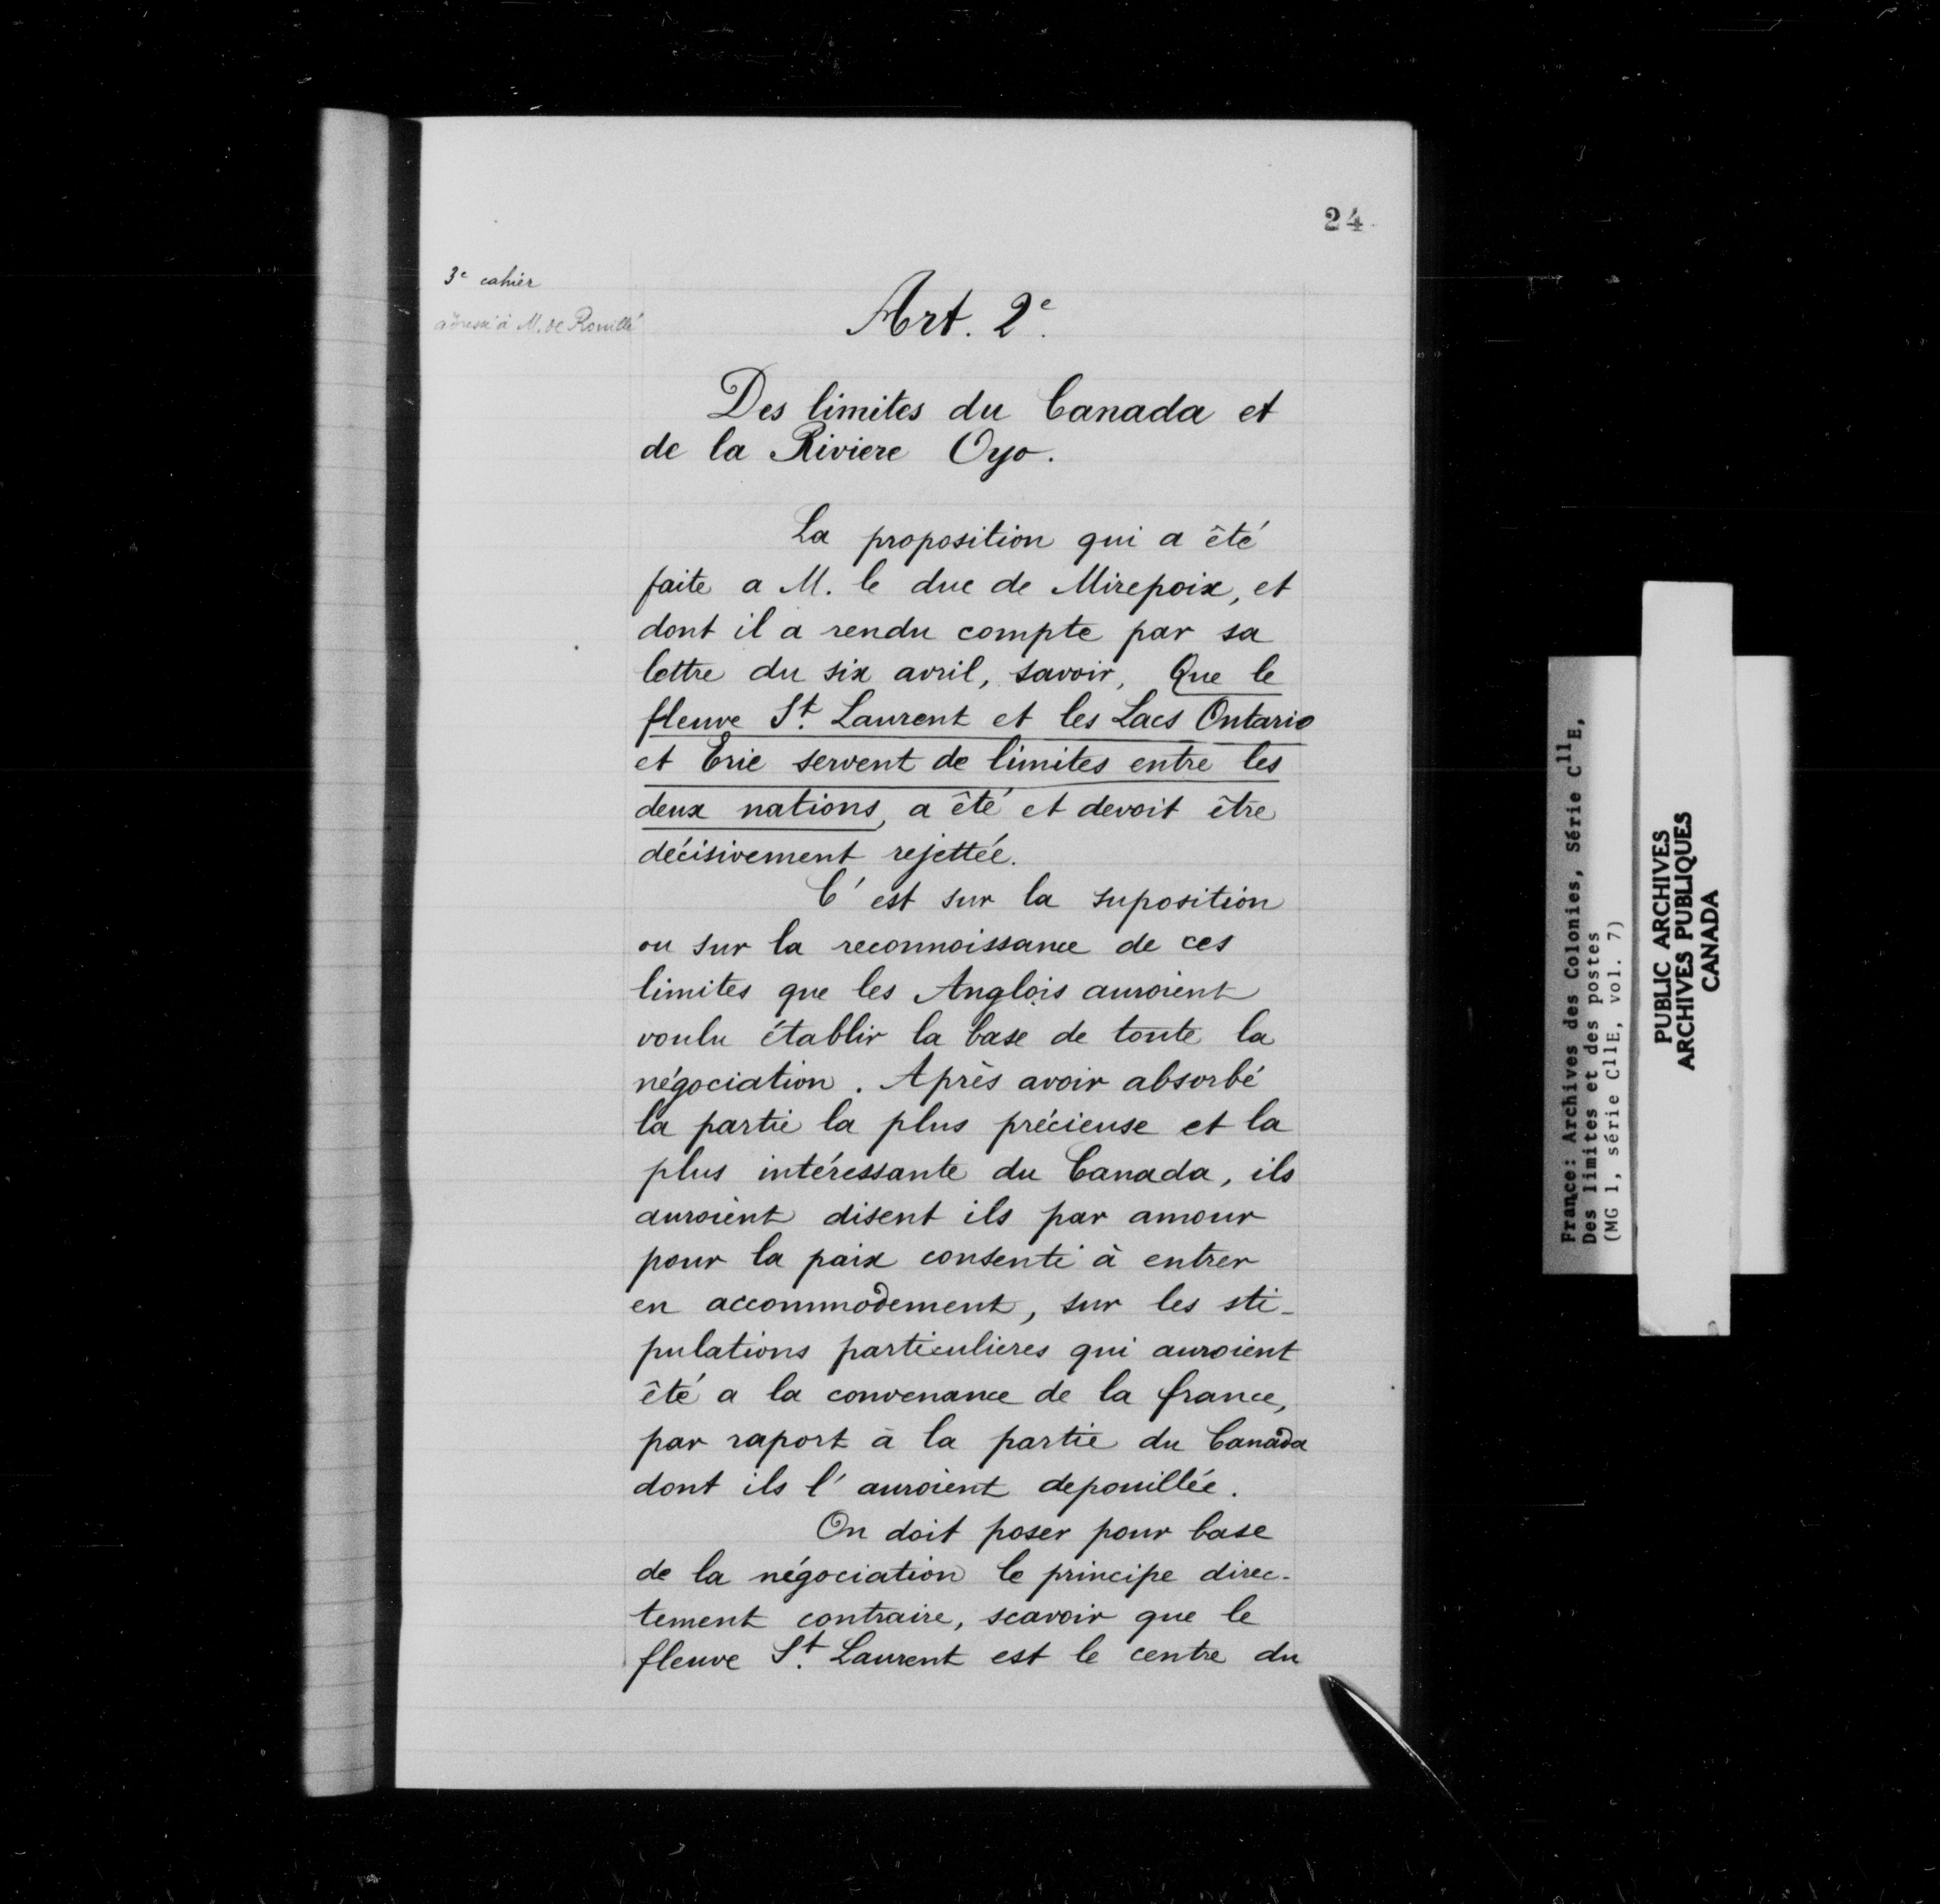 24
3e cahier
adressé à M. de Rouillé
Art. 2e.
Des limites du Canada et
de la Riviere Oyo.
La proposition qui a êté
faite a M. le duc de Mirepoix, et
dont il a rendu compte par sa
lettre du six avril, savoir, Que le
fleuve St. Laurent et les Lacs Ontario
et Erie servent de limites entre les
deux nations, a êté et devoit être
décisivement rejettée.
C'est sur la suposition
ou sur la reconnoissance de ces
limites que les Anglois auroient
voulu établir la base de toute la
négociation. Après avoir absorbé
la partie la plus précieuse et la
plus intéressante du Canada, ils
auroient disent ils par amour
pour la paix consenti à entrer
en accommodement, sur les sti-
pulations particulieres qui auroient
êté a la convenance de la france,
par raport à la partie du Canada
dont ils l'auroient depouillée.
On doit poser pour base
de la négociation le principe direc-
tement contraire, scavoir que le
fleuve St. Laurent est le centre du
France: Archives des Colonies, Série C11E,
Des limites et des postes
(MG 1, série C11E, vol. 7)
PUBLIC ARCHIVES
ARCHIVES PUBLIQUES
CANADA